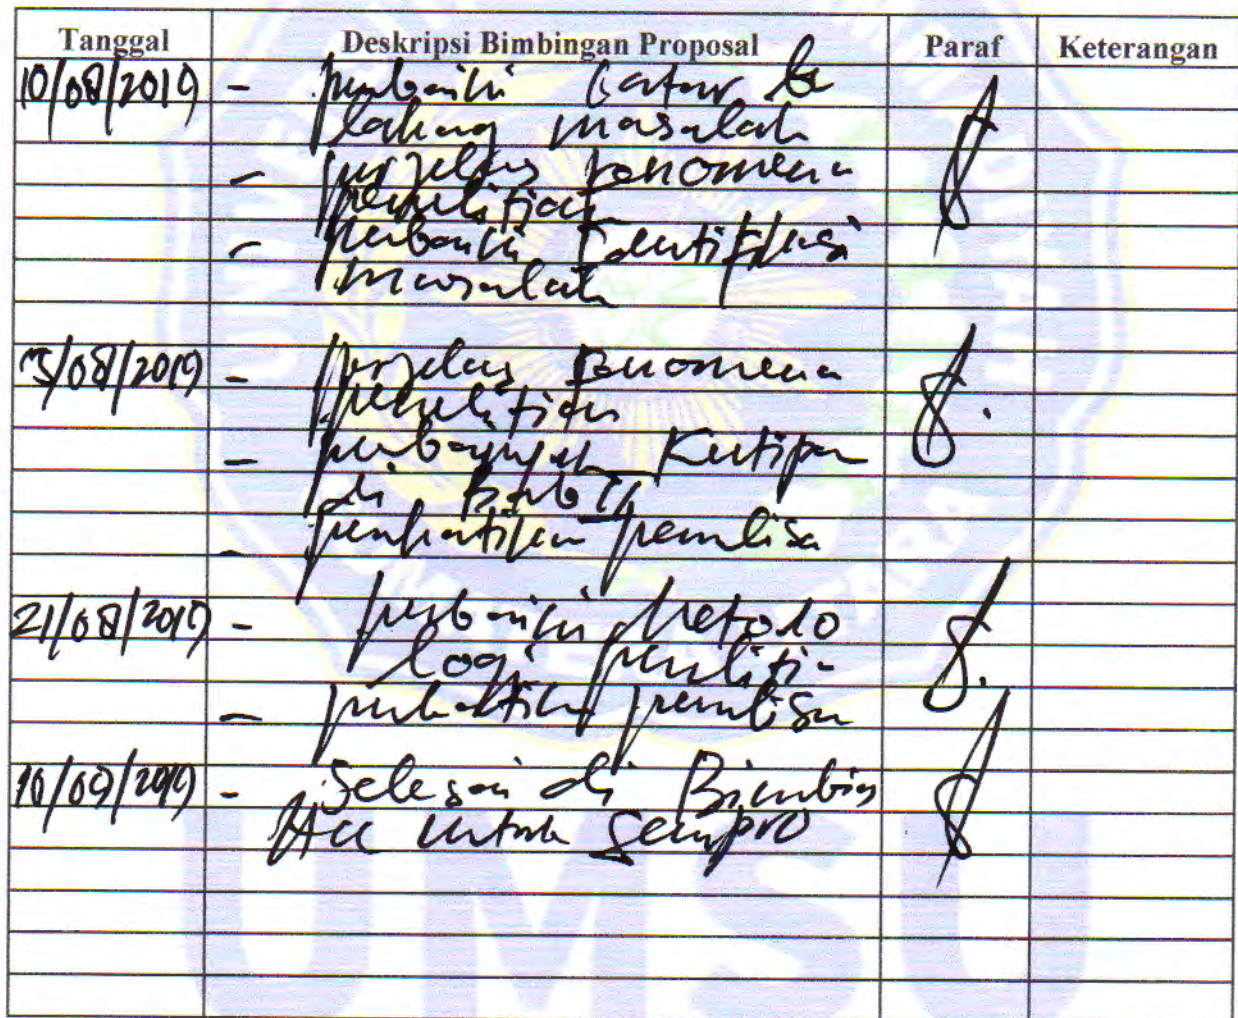 Tanggal Deskripsi Bimbingan Proposal Paraf Keterangan
10/08/2019 - perbaiki Latar be
lakang masalah
- perjelas fenomena
penelitian
- perbaiki Identifikasi
masalah
15/08/2019 - perjelas fenomena
penelitian
- perbanyak Kutipan
di Bab II
- perhatikan penulisa
21/08/2019 - perbaiki Metodo
logi penelitia
- perhatikan penulisa
10/09/2019 - Selesai di Bimbing
Acc untuk Sempro
UMSU